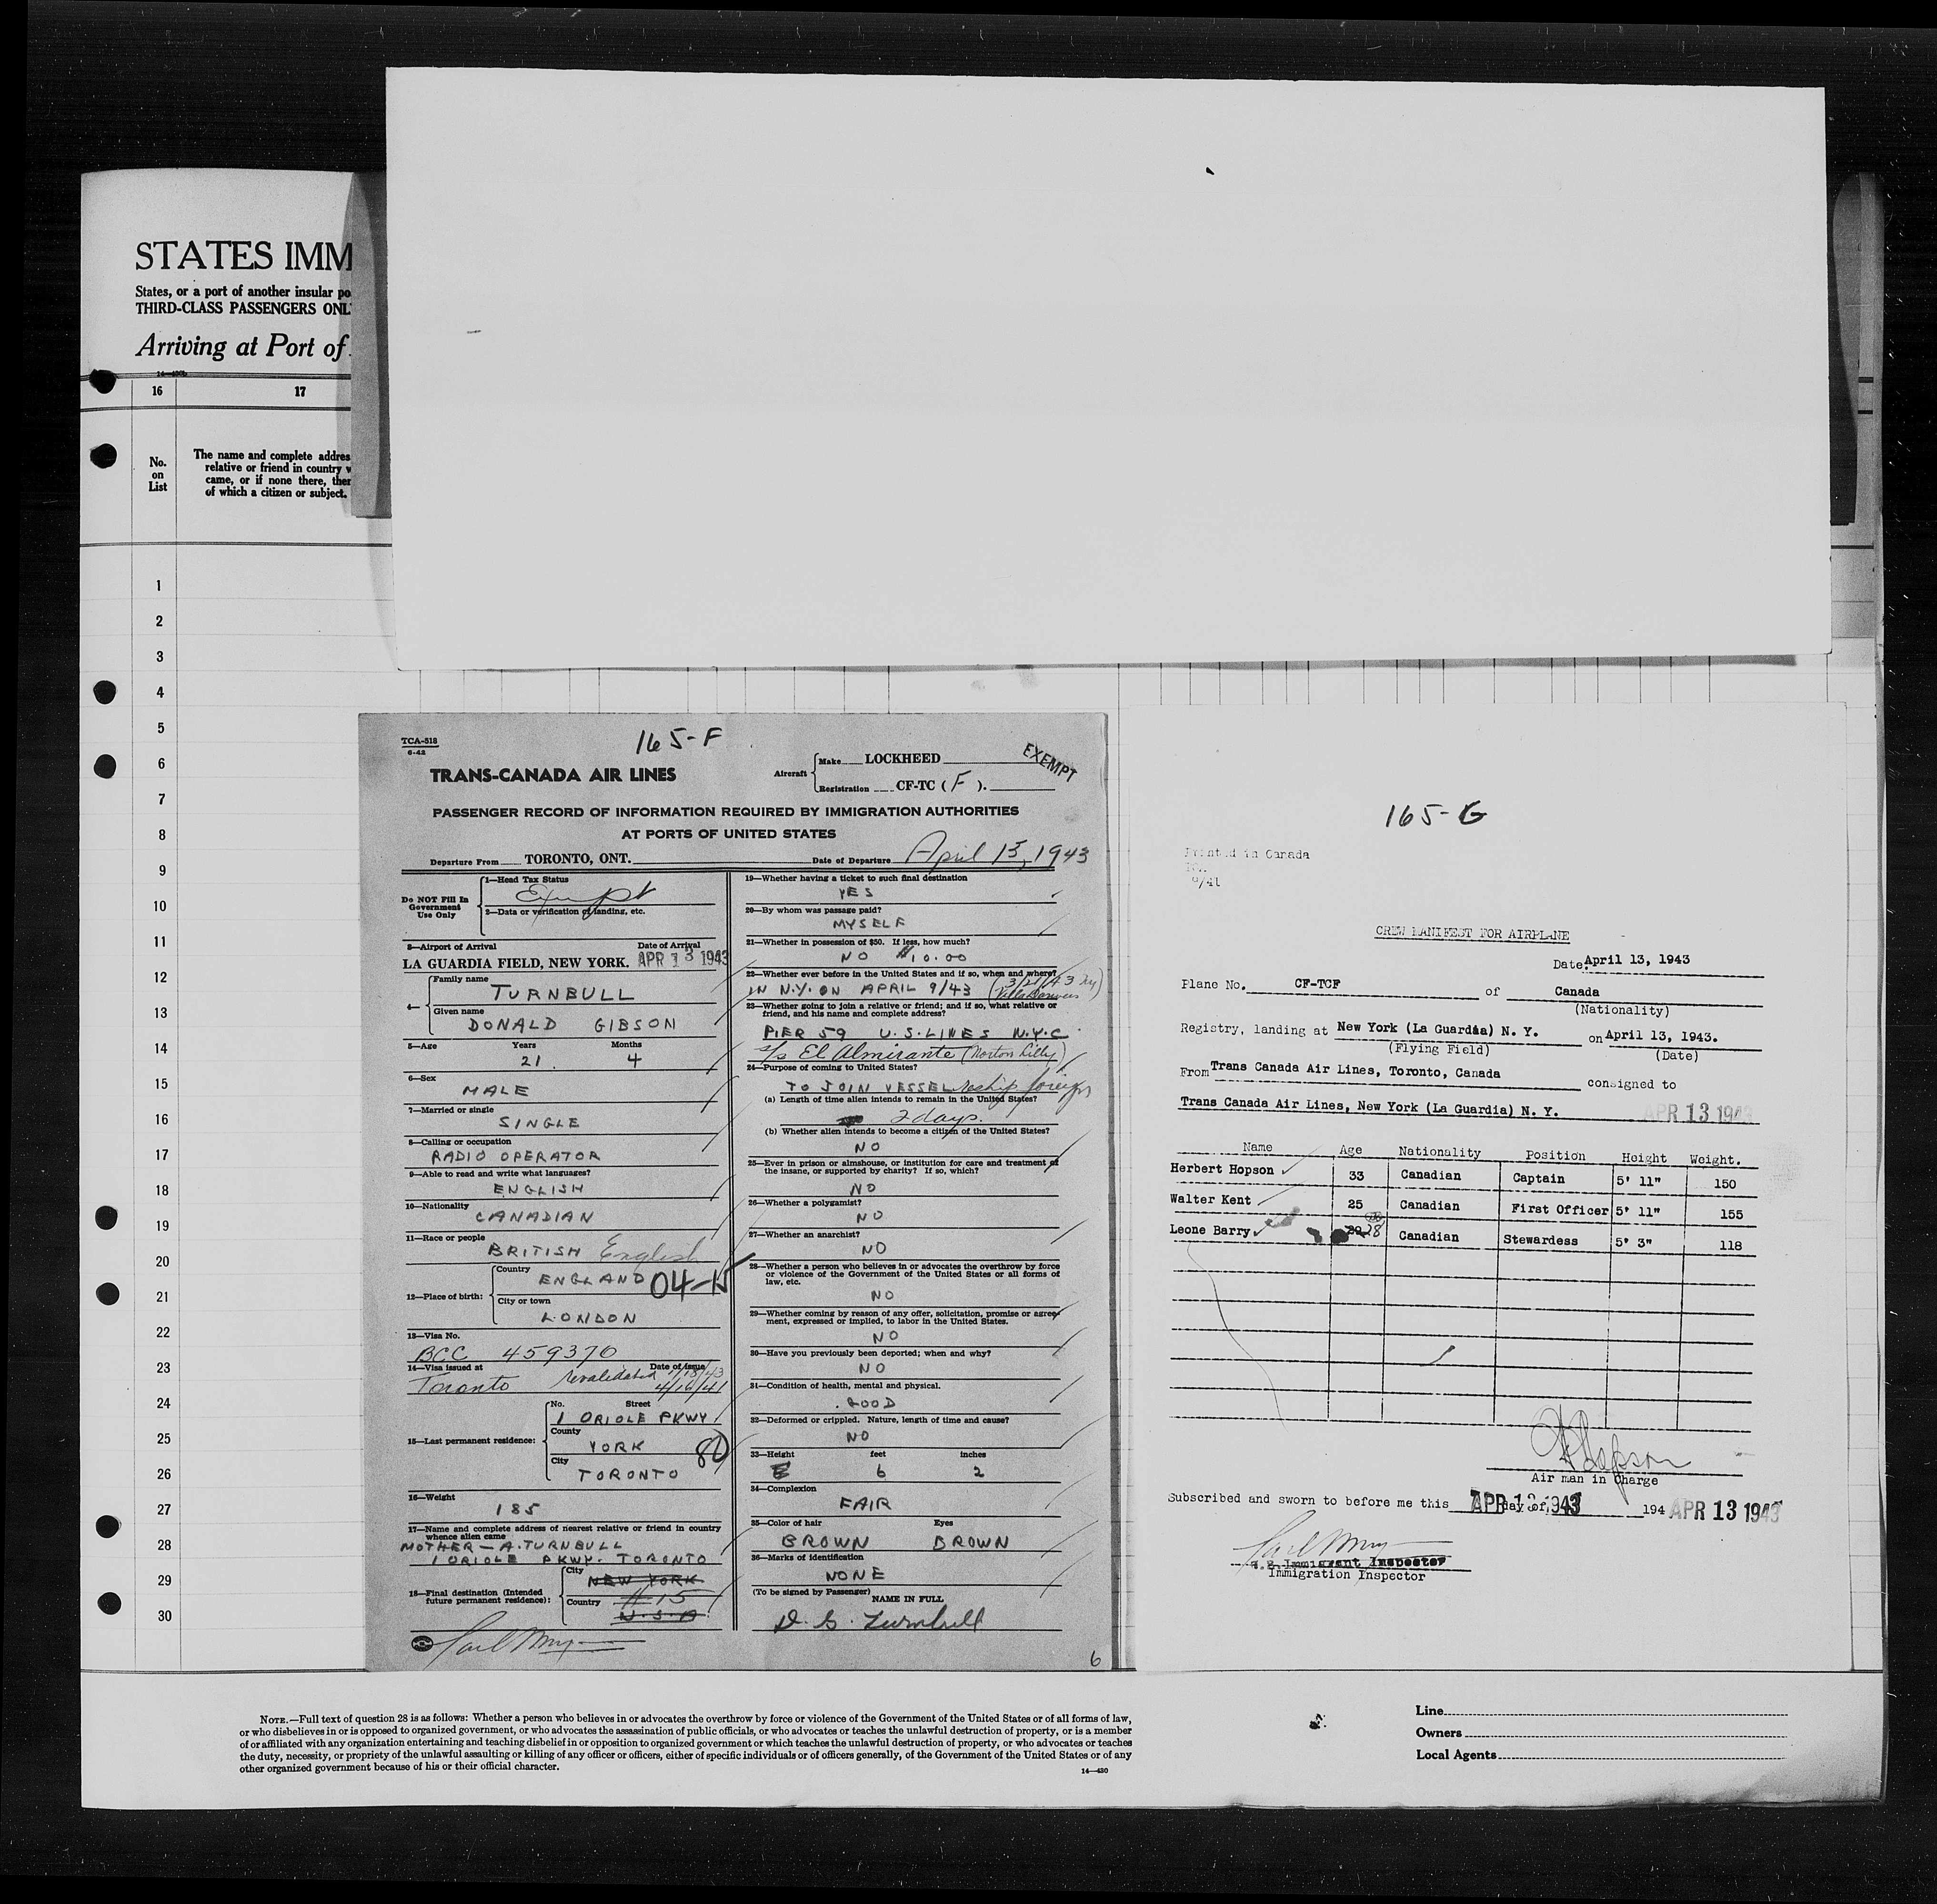 STATES IMM
States, or a port of another insular po
THIRD-CLASS PASSENGERS ONL
Arriving at Port of
16 17
No. on List
The name and complete addres
relative or friend in country w
came, or if none there, ther
of which a citizen or subject.
1
2
3
4
5
6
7
8
9
10
11
12
13
14
15
16
17
18
19
20
21
22
23
24
25
26
27
28
29
30
TCA-518
6-42
165-F
TRANS-CANADA AIR LINES
Aircraft
Make LOCKHEED
Registration CF-TC (F).
EXEMPT
PASSENGER RECORD OF INFORMATION REQUIRED BY IMMIGRATION AUTHORITIES
AT PORTS OF UNITED STATES
Departure From TORONTO, ONT. Date of Departure April 13, 1943
Do NOT Fill In Government Use Only
1—Head Tax Status
Exempt
2—Data or verification of landing, etc.
3—Airport of Arrival Date of Arrival
LA GUARDIA FIELD, NEW YORK. APR 13 1943
4— Family name
TURNBULL
Given name
DONALD GIBSON
5—Age Years Months
21 4
6—Sex
MALE
7—Married or single
SINGLE
8—Calling or occupation
RADIO OPERATOR
9—Able to read and write what languages?
ENGLISH
10—Nationality
CANADIAN
11—Race or people
BRITISH English
12—Place of birth:
Country
ENGLAND 04-15
City or town
LONDON
13—Visa No.
BCC 459370
14—Visa issued at Date of issue
Toronto revalidated 1/18/43
4/16/41
15—Last permanent residence:
No. Street
1 ORIOLE PKWY
County
YORK 80
City
TORONTO
16—Weight
185
17—Name and complete address of nearest relative or friend in country
whence alien came
MOTHER — A. TURNBULL
1 ORIOLE PKWY. TORONTO
18—Final destination (Intended
future permanent residence):
City
NEW YORK
Country
U.S.A
19—Whether having a ticket to such final destination
YES
20—By whom was passage paid?
MYSELF
21—Whether in possession of $50. If less, how much?
NO $10.00
22—Whether ever before in the United States and if so, when and where?
IN N.Y. ON APRIL 9/43
23—Whether going to join a relative or friend; and if so, what relative or
friend, and his name and complete address?
PIER 59 U.S. LINES N.Y.C.
s/s El Almirante (Norton Lilly)
24—Purpose of coming to United States?
TO JOIN VESSEL reship foreign
(a) Length of time alien intends to remain in the United States?
2 days
(b) Whether alien intends to become a citizen of the United States?
NO
25—Ever in prison or almshouse, or institution for care and treatment of
the insane, or supported by charity? If so, which?
NO
26—Whether a polygamist?
NO
27—Whether an anarchist?
NO
28—Whether a person who believes in or advocates the overthrow by force
or violence of the Government of the United States or all forms of
law, etc.
NO
29—Whether coming by reason of any offer, solicitation, promise or agree-
ment, expressed or implied, to labor in the United States.
NO
30—Have you previously been deported; when and why?
NO
31—Condition of health, mental and physical.
GOOD
32—Deformed or crippled. Nature, length of time and cause?
NO
33—Height feet inches
6 2
34—Complexion
FAIR
35—Color of hair Eyes
BROWN BROWN
36—Marks of identification
NONE
(To be signed by Passenger)
NAME IN FULL
D. G. Turnbull
6
165-G
Printed in Canada
9/41
CREW MANIFEST FOR AIRPLANE
Date, April 13, 1943
Plane No. CF-TCF of Canada
(Nationality)
Registry, landing at New York (La Guardia) N. Y. on April 13, 1943.
(Flying Field) (Date)
From Trans Canada Air Lines, Toronto, Canada consigned to
Trans Canada Air Lines, New York (La Guardia) N. Y.
APR 13 1943
Name Age Nationality Position Height Weight.
Herbert Hopson 33 Canadian Captain 5' 11" 150
Walter Kent 25 Canadian First Officer 5' 11" 155
Leone Barry 28 Canadian Stewardess 5' 3" 118
H Hopson
Air man in Charge
Subscribed and sworn to before me this APR 13 1943 day of 194 APR 13 1943
U.S. Immigrant Inspector
Immigration Inspector
NOTE.—Full text of question 28 is as follows: Whether a person who believes in or advocates the overthrow by force or violence of the Government of the United States or of all forms of law,
or who disbelieves in or is opposed to organized government, or who advocates the assassination of public officials, or who advocates or teaches the unlawful destruction of property, or is a member
of or affiliated with any organization entertaining and teaching disbelief in or opposition to organized government or which teaches the unlawful destruction of property, or who advocates or teaches
the duty, necessity, or propriety of the unlawful assaulting or killing of any officer or officers, either of specific individuals or of officers generally, of the Government of the United States or of any
other organized government because of his or their official character.
14—430
Line
Owners
Local Agents